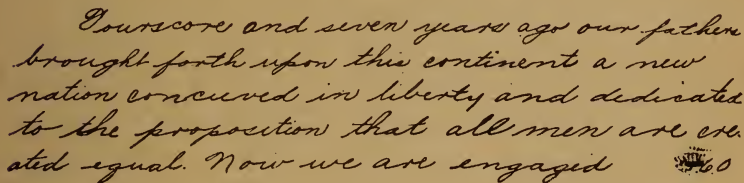 Fourscore and seven years ago our fathers
brought forth upon this continent a new
nation conceived in liberty and dedicated
to the proposition that all men are cre-
ated equal. Now we are engaged 60